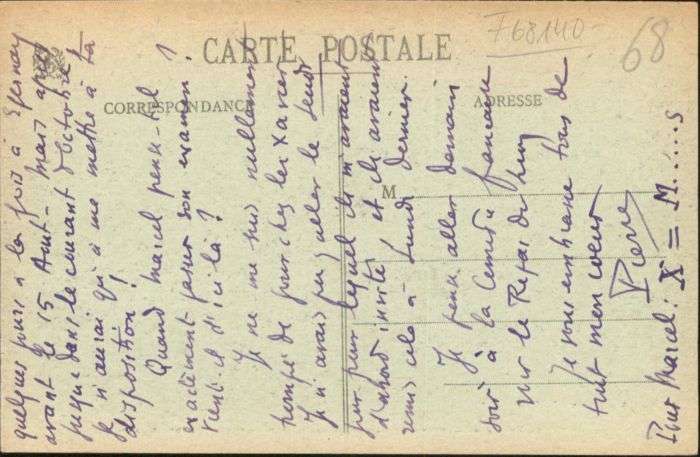 CARTE POSTALE
CORRESPONDANCE
ADRESSE
M
F68140
68
quelques jours à la fois à Epernay
avant le 15 Août - mais après
jusque dans le courant d'Octobre
je n'aurai qu'à me mettre à ta
disposition!
Quand Marcel pense-t-il
exactement passer son examen?
Vient-il d'ici là?
Je ne me suis nullement
trompé de jour chez les Xavier
Je n'avais pu y aller le lundi
jour pour lequel ils m'avaient
d'abord invité et ils avaient
remis cela à lundi dernier.
Je pense aller demain
soir à la Comédie française
voir le Repas du
Je vous embrasse tous de
tout mon coeur
Pierre
Pour Marcel: X = M.....s